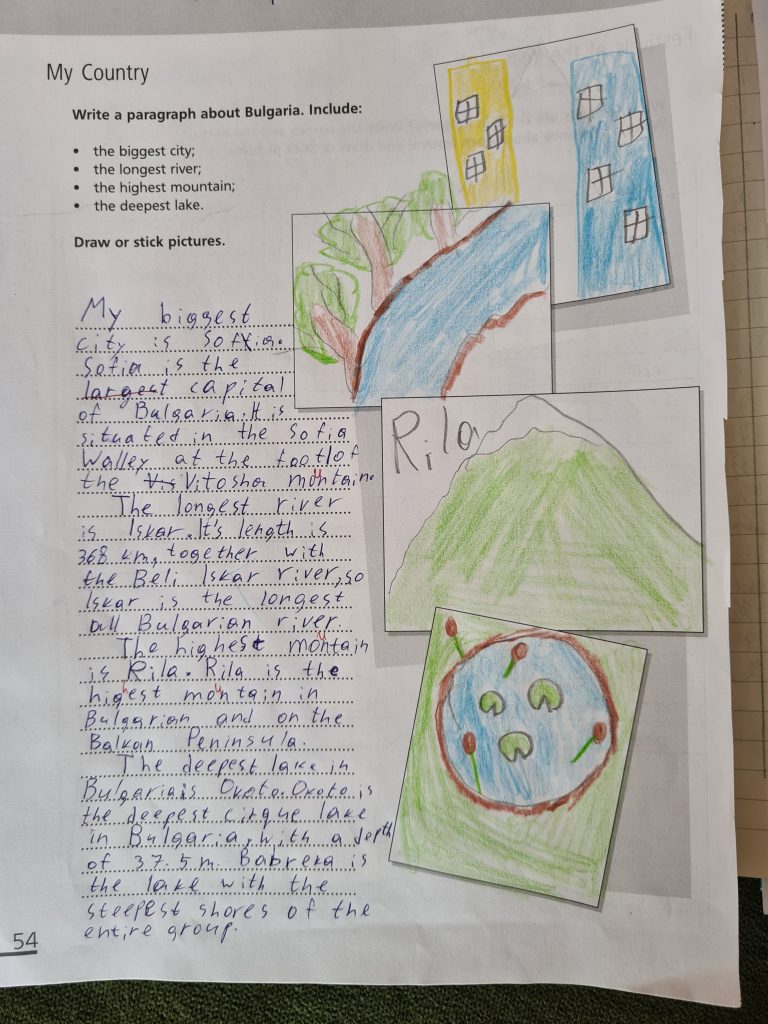 My Country
Write a paragraph about Bulgaria. Include:
• the biggest city;
• the longest river;
• the highest mountain;
• the deepest lake.
Draw or stick pictures.
My biggest
city is Soffia.
Sofia is the
largest capital
of Bulgaria. It is
situated in the Sofia
Walley at the foot of
the Vis Vitosha mountain.
The longest river
is Iskar. It's length is
368 km, together with
the Beli Iskar river, so
Iskar is the longest
all Bulgarian river.
The highest mountain
is Rila. Rila is the
highest mountain in
Bulgarian and on the
Balkan Peninsula.
The deepest lake in
Bulgaria is Okoto. Okoto is
the deepest cirque lake
in Bulgaria, with a depth
of 37.5 m. Babreka is
the lake with the
steepest shores of the
entire group.
Rila
54